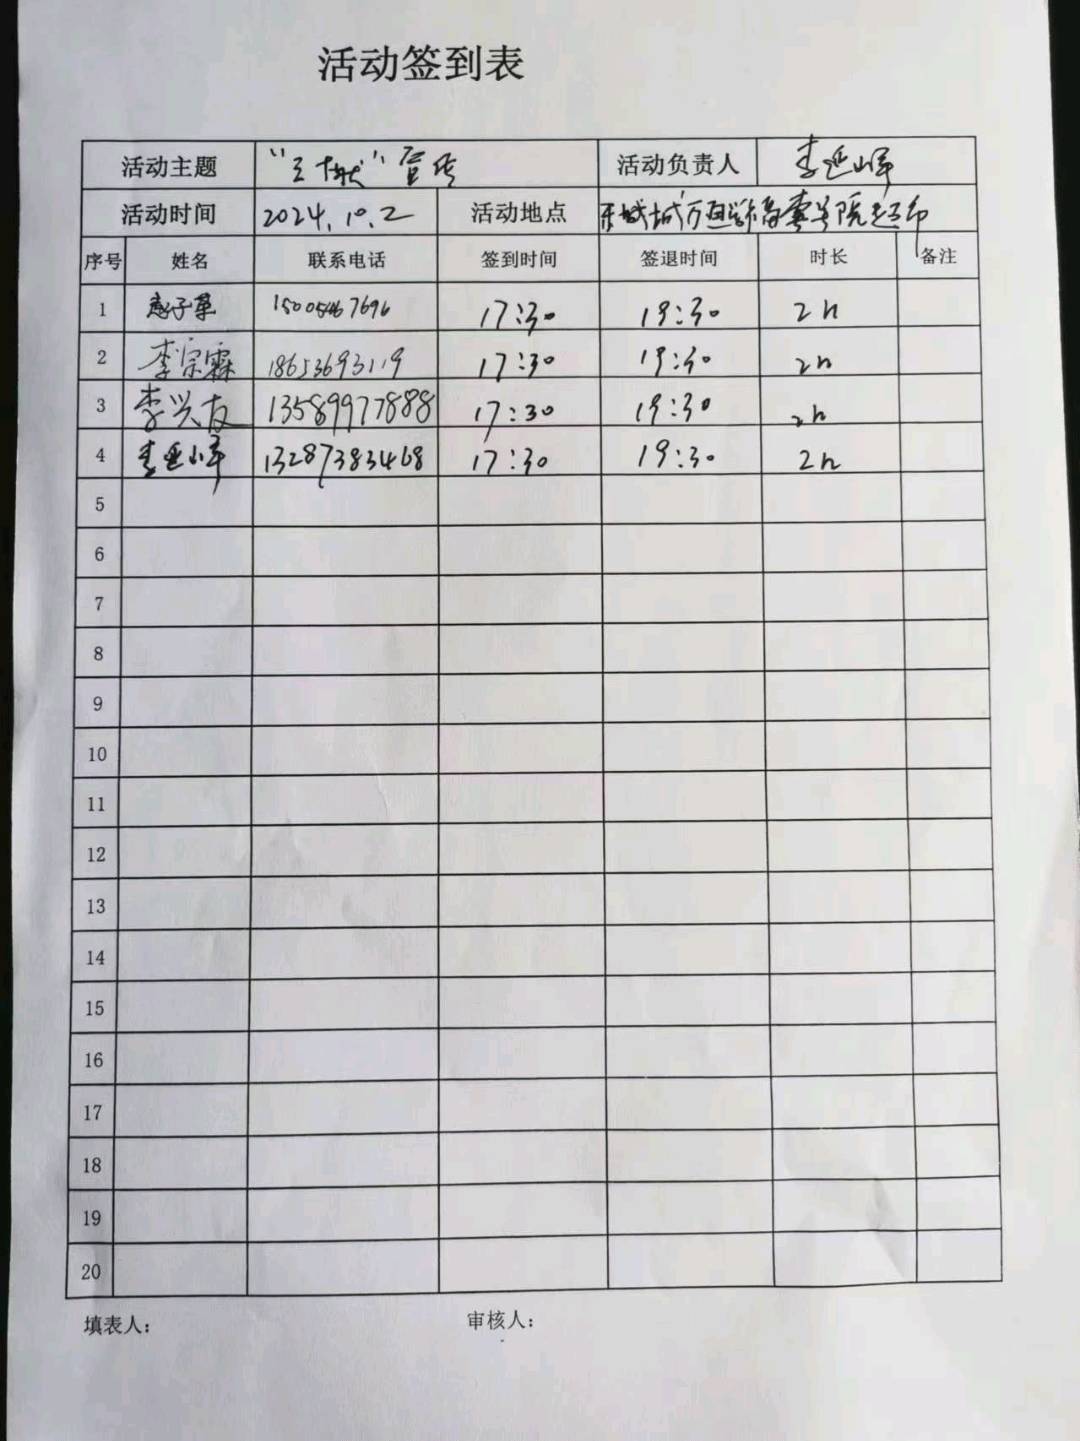 活动签到表
活动主题 "三献"宣传 活动负责人 李延峰
活动时间 2024.10.2 活动地点
序号 姓名 联系电话 签到时间 签退时间 时长 备注
1 17:30 19:30 2h
2 李宗霖 18653693119 17:30 19:30 2h
3 李兴友 13589977888 17:30 19:30 2h
4 李延峰 13287383468 17:30 19:30 2h
5
6
7
8
9
10
11
12
13
14
15
16
17
18
19
20
填表人: 审核人: